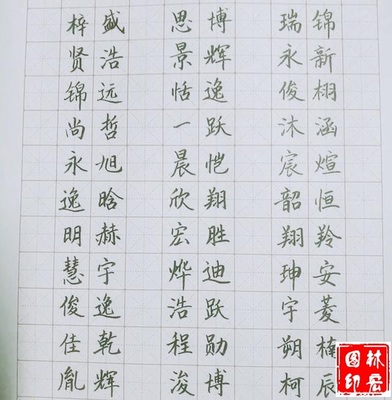 梓盛 思博 瑞锦
贤浩 景辉 永新
锦远 恬逸 俊栩
尚哲 一跃 沐涵
永旭 晨恺 宸煊
逸晗 欣翔 韶恒
明赫 宏胜 翔羚
慧宇 烨迪 珅安
俊逸 浩跃 宇菱
佳乾 程勋 朔楠
胤辉 浚博 柯辰
林
圆印